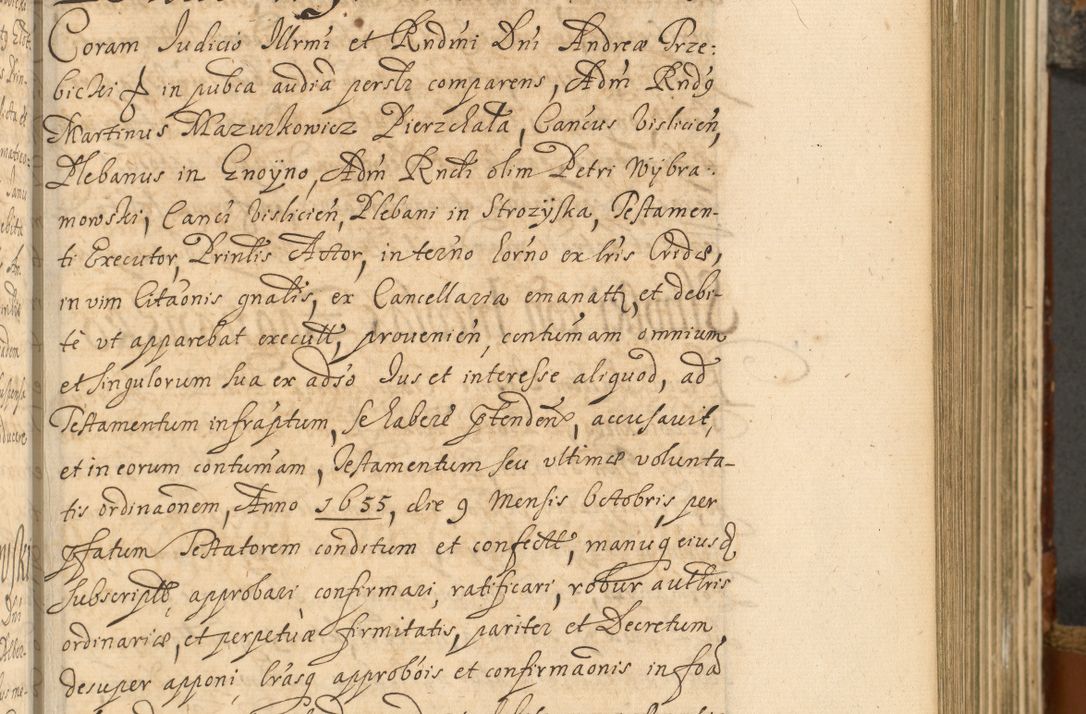 Coram Judicio Illrmi et Rndmi Dni Andreæ Trze:
bicki in pubca audiã persłr comparens, Adm Rndg
Martinus Mazurkowicz Pierzchała, Cancus Visliciẽn,
Plebanus in Gnoÿno, Adm Rndi olim Petri Wÿbra:
mowski, Canci Visliciẽn, Plebani in Strozÿska, Testamen-
ti Executor, Prinlis Actor, in terno torno ex lris Cridæ,
in vim Citaonis gnalis, ex Cancellaria emanatt, et debi-
tè vt apparebat executt, prouenien, contumam omnium
et singulorum sua ex adso Jus et interesse aliquod, ad
Testamentum infraptum, se habere ptenden, accusauit,
et in eorum contumam, Testamentum seu vltimæ volunta-
tis ordinaonem, Anno 1655, die 9 Mensis Octobris, per
pfatum Testatorem conditum et confectt, manuq eiusd
subscriptt, approbari, confirmari, ratificari, robur auttris
ordinariæ, et perpetuæ firmitatis, pariter et Decretum
desuper apponi, lrasq approbois et confirmaonis in foã